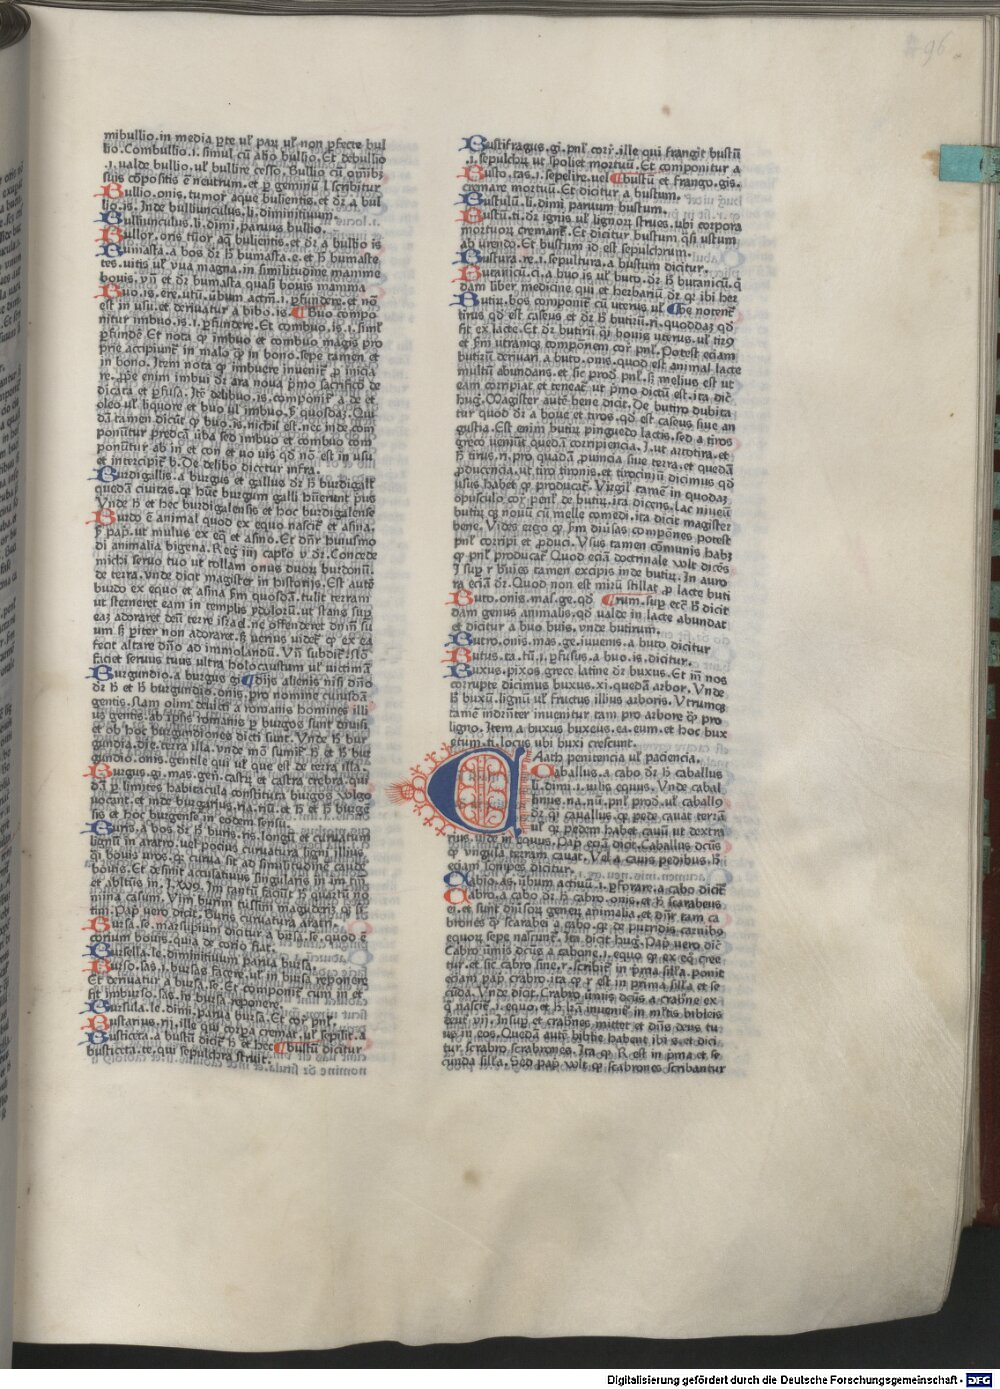 96
mibullio.in media p̱te ul̕ pay ul̕ non p̱fecte bul
lio.Combullio.i.simul cū alio bullio. Et debullio
.i.ualde bullio.ul̕ bullire cesso. Bullio cū omībꝫ
suis cōpositis ē neutrum.et p̱ geminū l scribitur
Bullio.onis.tumor aque bulientis.et dr̄ a bul
lio.is. Inde bulliunculus.li.diminitiuum.
Bulliunculus.li.dimi.paruus bullio.
Bullor.oris tūor aq̄ bulientis.et dr̄ a bullio is
Bumasta.a bos dr̄ h̄ bumasta.e.et h̄ bumaste
tes.uitis ul̕ uua magna.in similitudine mamme
bouis.vn̄ et dr̄ bumasta quasi bouis mamma
Buo.is.ere.utū.ubum actiū.i.p̱fundere.et nō
est in usu.et deriuatur a bibo.is. Buo compo
nitur imbuo.is.i.p̱fundere.Et combuo.is.i.siml̕
p̱fundē Et nota ꝙ imbuo et combuo magis pro
prie accipiunt̕ in malo ꝙ̄ in bono.sepe tamen et
in bono. Item nota ꝙ imbuere inuenit̕ p̱ inicia
re..p̱pe enim imbui dr̄ ara noua p̱mo sacrificō de
dicata et p̱fusa. Itē delibuo.is.componit̕ a de et
oleo ul̕ liquore et buo ul̕ imbuo.ẜ quosdaꝫ. Qui
dā tamen dicūt ꝙ buo.is.nichil est.nec inde com
ponūtur predcā ūba sed imbuo et combuo com
ponūtur ab in et con et uo uis qd̄ nō est in usu
et intercipit̕ b. De delibo dicetur infra.
Burdigallis.a burgus et gallus dr̄ h̄ burdigall̕
quedā ciuitas.ꝙ hūc burgum galli hūerunt pus
Vnde h̄ et hec burdigalensis et hoc burdigalense
Burdo ē animal quod ex equo nascit̕ et asina.
ẜ pap̱.ut mulus ex eq̄ et asino. Et dn̄r huiusmo
di animalia bigena. Reg̱ iiij capl̕o v dr̄. Concede
michi seruo tuo ut tollam onus duoꝝ burdonū.
de terra.vnde dicit magister in historijs. Est autē
burdo ex equo et asina ẜm quosdā.tulit terram
ut sterneret eam in templis ydoloꝝ.ut stans sup̱
eaꝫ adoraret deū terre israel.ne offenderet dnīm su
um si p̱iter non adoraret.si uerius uidet̕ ꝙ ex ea
fecit altare dn̄o ad immolandū. Vn̄ subdit̕.nō
faciet seruus tuus ultra holocaustum ul̕ uictimā
Burgundio.a burgus gi dijs alienis nisi dn̄o
dr̄ h̄ et h̄ burgundio.onis.pro nomine cuiusdā
gentis. Nam olim deuicti a romanis homines illi
us gentis.ab ip̱sis romanis p̱ burgos sunt diuisi
et ob hoc burgundiones dicti sunt. Vnde h̄ bur
gundia.die.terra illa.unde mō sumit̕ h̄ et h̄ bur
gundio.onis.gentile qui ul̕ que est de terra illa.
Burgus.gi.mas.gen̄.castꝝ et castra crebra.qui
dā p̱ limites habitacula constituta burgos vulgo
uocant.et inde burgarius.ria.riū.et h̄ et h̄ burgē
sis et hoc burgense in eodem sensu.
Buris.a bos dr̄ h̄ buris.ris.longū et curuatum
lignū in aratro.uel pocius curuatura ligni illius
q̄ bouis uros.ꝙ curua sit ad similitudinē caude
bouis.Et desinit accusatiuus singularis in im tm̄
mina casum. Vim burim tussim magudciris ꝙ se
tim. Pap̱ vero dicit. Buris curuatura aratri.
Bursa.se.marsupium dicitur a birsa.se.quod ē
corium bouis.quia de corio fiat.
Bursella.le.diminitiuum parua bursa.
Burso.sas.i.bursas facere.ul̕ in bursa reponere
Et deriuatur a bursa.se. Et componit̕ cum in et
fit imburso.sas.in bursa reponere.
Bursula.le.dimi.parua bursa. Et cor̕ pnl̕.
Bustarius.rij.ille qui corpa cremat.ul̕ sepilit.a
Busticeta.a bustū dicit̕ h̄ et hec bustū dicitur
busticeta.te.qui sepulchra struit.
Bustifragus.gi.pnl̕ cor̕.ille qui frangit bustū
.i.sepulchꝝ ut spoliet mortuū. Et componitur a
Busto.tas.i.sepelire.uel bustū et frango.gis.
cremare mortuū. Et dicitur a bustum.
Bustulū.li.dimi paruum bustum.
Bustū.ti.dr̄ ignis ul̕ lignoꝝ strues.ubi corpora
mortuoꝝ cremant̕. Et dicitur bustum q̄si ustum
ab urendo. Et bustum id est sepulchrum.
Bustura.re.i.sepultura.a bustum dicitur.
Butanicū.ci.a buo is ul̕ buto.dr̄ h̄ butanicū.q̄
dam liber medicine qui et herbariū dr̄ ꝙ ibi her
Butiꝝ.bos componit̕ cū uterus ul̕ be notent̕
tirus qd̄ est caseus et dr̄ h̄ butirū.ri.quoddaꝫ qd̄
fit ex lacte. Et dr̄ butirū q̄i bouis uterus.ul̕ tir9
et ẜm utramqꝫ componem cor̕ pnl̕. Potest eciam
butirū deriuari a buto.onis.quod est animal lacte
multū abundans.et sic prod̕ pnl̕.sꝫ melius est ut
eam corripiat et teneat̕ ut p̱mo dictū est.ita dic̄
hug̱. Magister autē bene dicit. De butiro dubita
tur quod dr̄ a boue et tiros.qd̄ est caseus siue an
gustia. Est enim butiꝝ pinguedo lactis.sed a tiros
greco ueniūt quedā corripiencia.J.ut artotira.et
h̄ tirus.ri.pro quadā p̱uincia siue terra.et quedā
p̱ducencia.ut tiro tironis.et tirociniū dicimus qd̄
usus habet ꝙ producat̕. Virgil̕ tamē in quodaꝫ
opusculo cor̕ pnl̕ de butiꝝ.ita dicens.lac niueū
butiꝝ qꝫ nouū cū melle comedi.ita dicit magister
bene. Vides ergo ꝙ ẜm diūsas compōnes potest
pnl̕ corripi et p̱duci. Vsus tamen cōmunis habꝫ
ꝙ pnl̕ producat̕ Quod eciā doctrinale volt dicēs
J sup̱ r bries tamen excipis inde butiꝝ. In auro
ra eciā dr̄. Quod non est mirū stillat p̱ lacte buti
Buto.onis.mas.ge.qd̄ rum.sup̱ ecc̄ h̄ dicit
dam genus animalis.qd̄ ualde in lacte abundat
et dicitur a buo buis.vnde butirum.
Butro.onis.mas.ge.iuuenis.a buto dicitur
Butus.ta.tū.i.p̱fusus.a buo.is.dicitur.
Buxus.pixos grece latine dr̄ buxus. Et iñ nos
corrupte dicimus buxus.xi.quedā arbor. Vnde
h̄ buxū.lignū ul̕ fructus illius arboris. Vtrumqꝫ
tamē indrn̄ter inuenitur tam pro arbore ꝙ̄ pro
ligno. Item a buxus buxeus.ea.eum.et hoc bux
etum.ti.locus ubi buxi crescunt.
CAath penitencia ul̕ paciencia.
Caballus.a cabo dr̄ h̄ caballus
li.dimi.i.uilis equus. Vnde cabal
linus.na.nū.pnl̕ prod̕.ul̕ caball9
dr̄ q̄i cauallus.ꝙ pede cauat terrā
ul̕ ꝙ pedem habet cauū ut dextra
rius.uide in equus. Pap̱ eciā dicit. Caballus dc̄us
ꝙ vngula terram cauat. Vel a cauis pedibus.h̄
eciam sonipes dicitur.
Cabio.as.ūbum actiuū.i.p̱forare.a cabo dicit̕
Cabro.a cabo dr̄ h̄ cabro.onis.et h̄ scarabeus
ei.et sunt diūsoꝝ geneꝝ animalia.et dn̄r tam ca
brones ꝙ scarabei a cabo.ꝙ de putridis carnibꝫ
equoꝝ sepe nascunt̕. Ita dicit hug̱. Pap̱ vero dic̄
Cabro ūmis dc̄us a cabone.i.equo ꝙ ex eq̄ cree
tur.et sic cabro sine.r.scribit̕ in p̱ma silla. ponit
eciam pap̱ crabro.ita ꝙ r est in prima silla et se
cūda. Vnde dicit. Crabro ūmis dc̄us a crabrone ex
ꝙ nascit̕.i.equo.et h̄ lrā inuenit̕ in ml̕tis bibleis
deut̕ vij. Insup̱ et crabrones mittet et dn̄s deus tu
us in eos. Quedā autē biblie habent ibi s.et dici
tur.scrabro scrabrones. Ita ꝙ R.est in p̱ma et se
cūnda silla. Sed pap̱ volt ꝙ scabrones scribantur
Digitalisierung gefördert durch die Deutsche Forschungsgemeinschaft - DFG